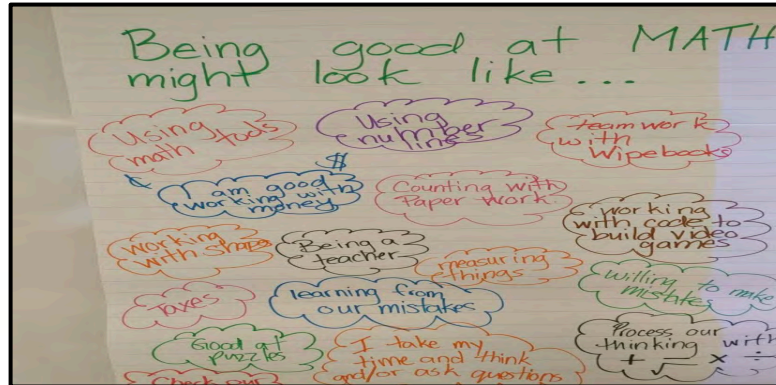 Being good at MATH
might look like...
Using
math tools
Using
number
lines
teamwork
with
Wipebooks
¢ $
I am good
working with
money
Counting with
Paper work.
working
with code to
build video
games
working
with shapes
Being a
teacher
measuring
things
willing to make
mistakes
Taxes
learning from
our mistakes
Good at
puzzles
I take my
time and think
and/or ask questions
Process our
thinking with
+ √ × ÷
Check our